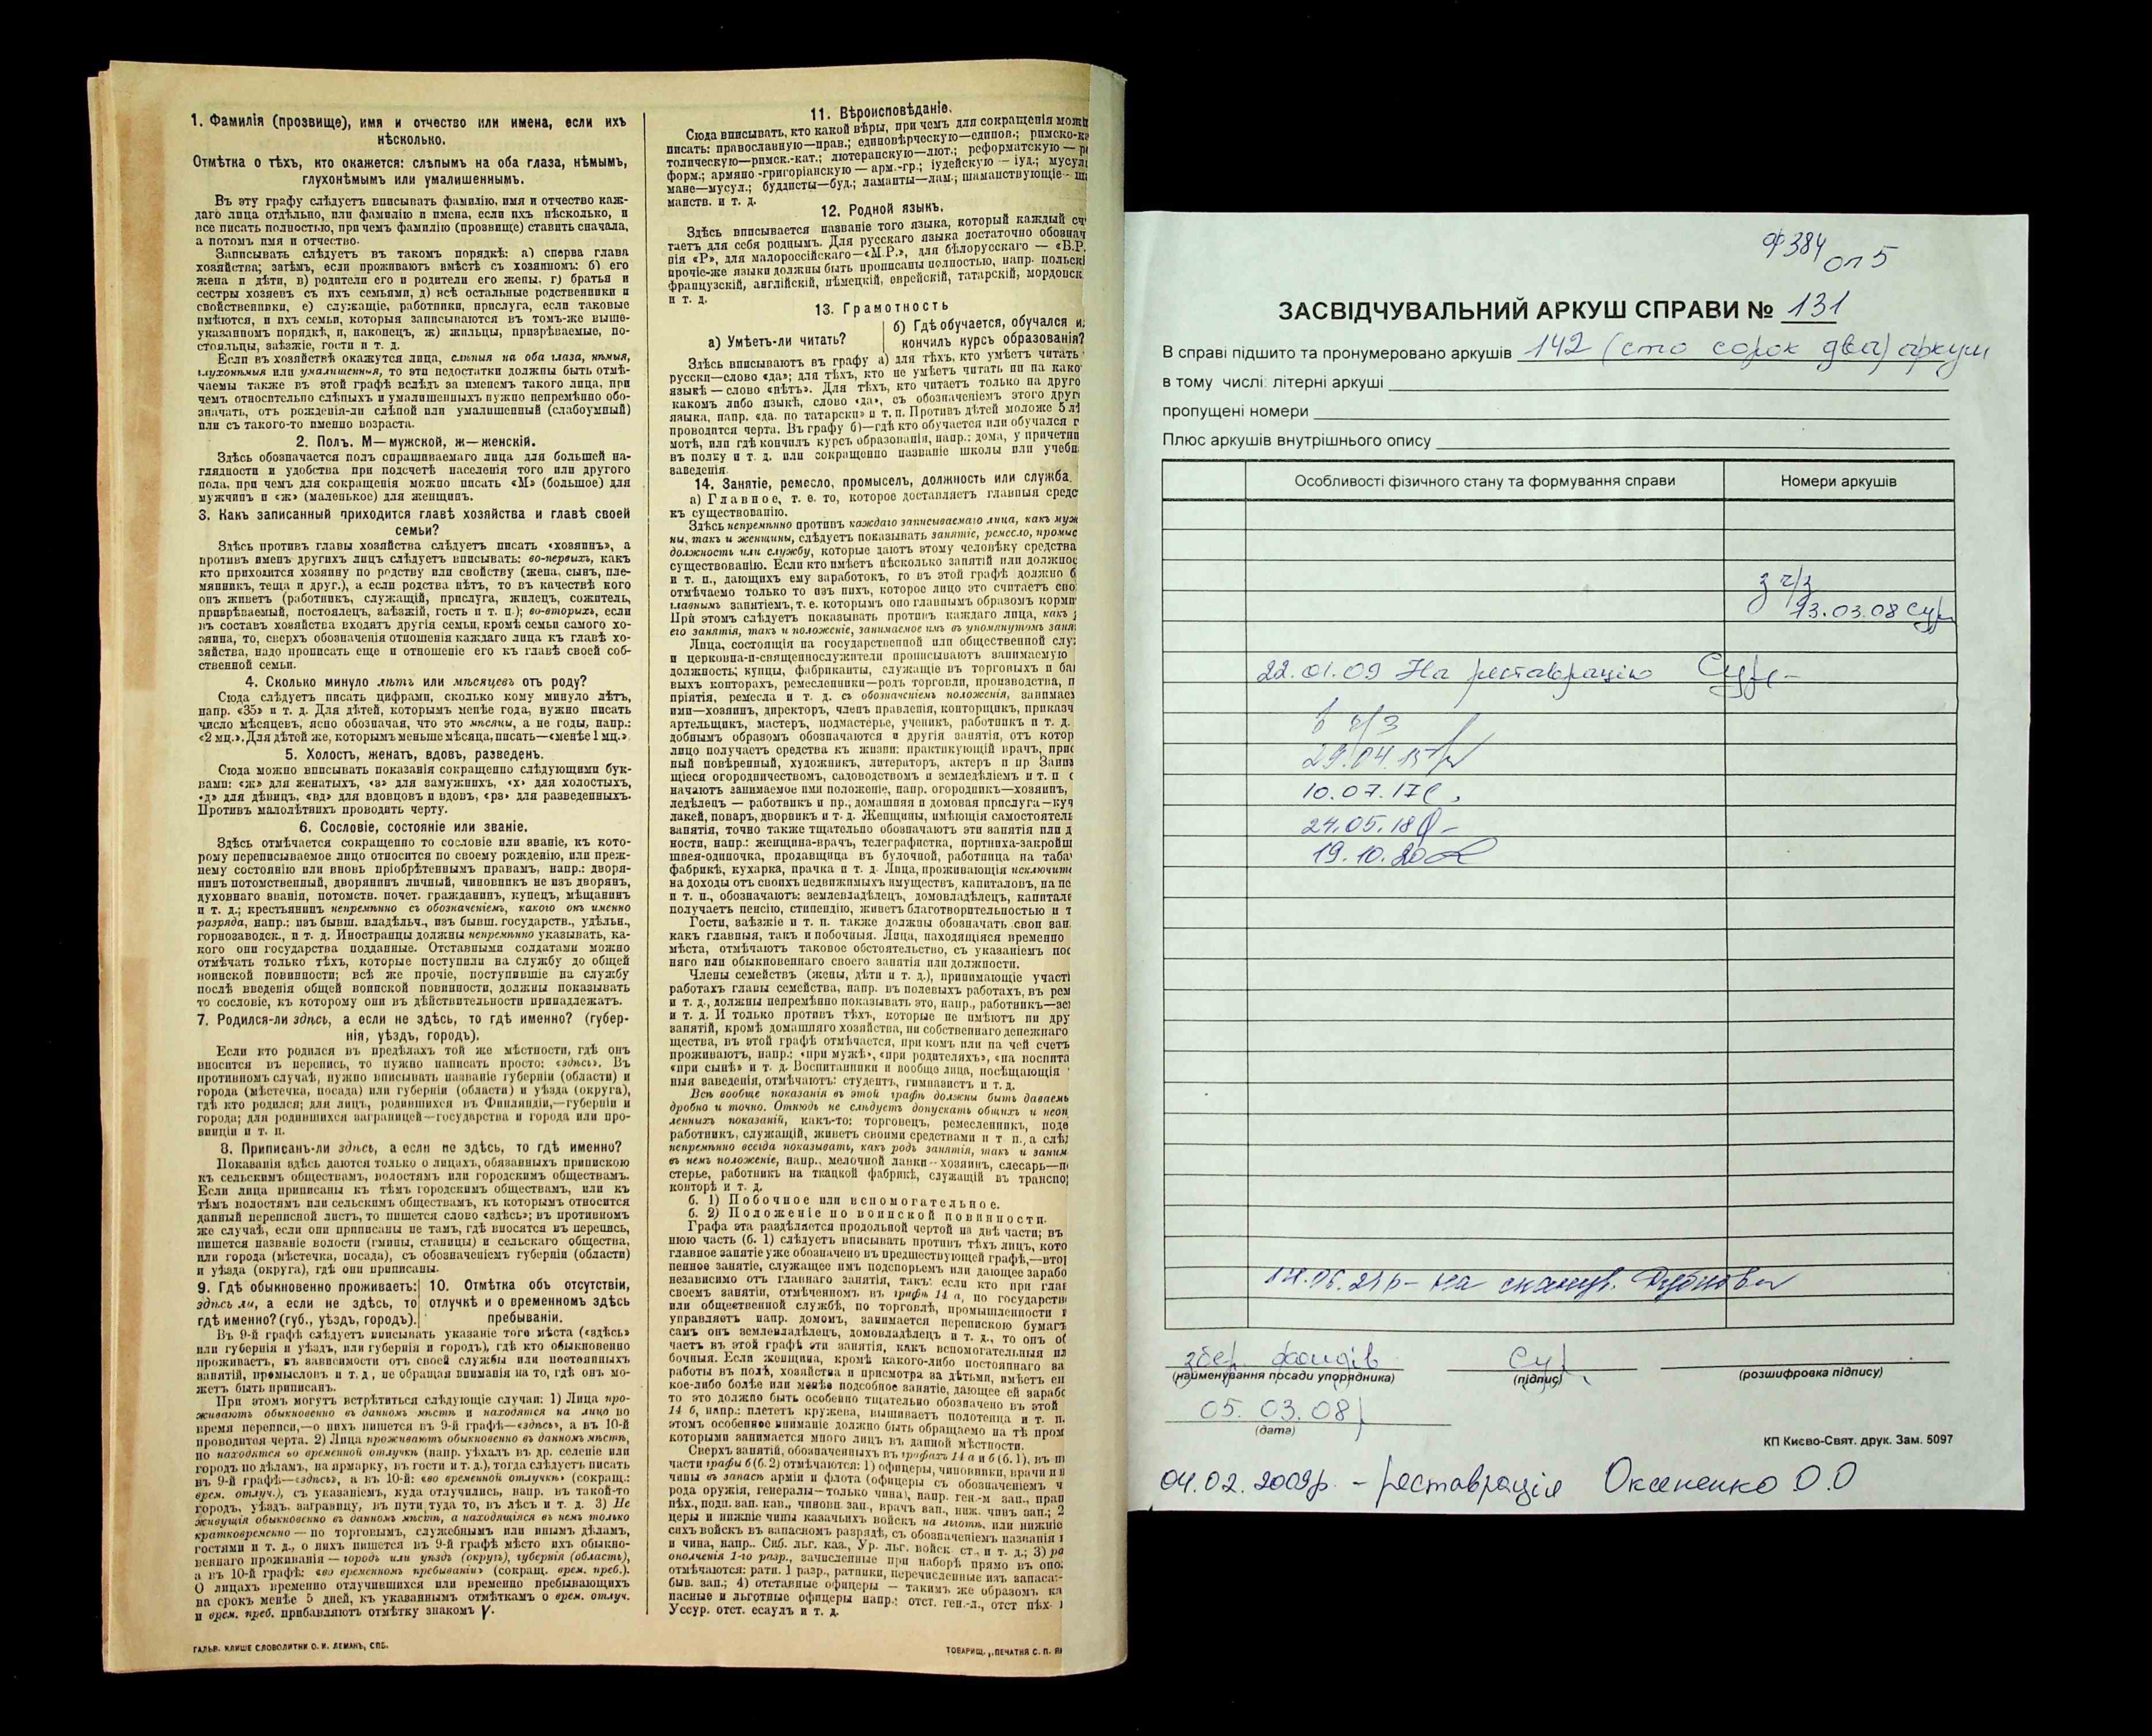 1. Фамилія (прозвище), имя и отчество или имена, если ихъ
нѣсколько.
Отмѣтка о тѣхъ, кто окажется: слѣпымъ на оба глаза, нѣмымъ,
глухонѣмымъ или умалишеннымъ.
Въ эту графу слѣдуетъ вписывать фамилію, имя и отчество каж-
даго лица отдѣльно, или фамилію и имена, если ихъ нѣсколько, и
все писать полностью, при чемъ фамилію (прозвище) ставить сначала,
а потомъ имя и отчество.
Записывать слѣдуетъ въ такомъ порядкѣ: а) сперва глава
хозяйства; затѣмъ, если проживаютъ вмѣстѣ съ хозяиномъ: б) его
жена и дѣти, в) родители его и родители его жены, г) братья и
сестры хозяевъ съ ихъ семьями, д) всѣ остальные родственники и
свойственники, е) служащіе, работники, прислуга, если таковые
имѣются, и ихъ семьи, которыя записываются въ томъ-же выше-
указанномъ порядкѣ, и, наконецъ, ж) жильцы, призрѣваемые, по-
стояльцы, заѣзжіе, гости и т. п.
Если въ хозяйствѣ окажутся лица, слѣпыя на оба глаза, нѣмыя,
глухонѣмыя или умалишенныя, то эти недостатки должны быть отмѣ-
чаемы также въ этой графѣ вслѣдъ за именемъ такого лица, при
чемъ относительно слѣпыхъ и умалишенныхъ нужно непремѣнно обо-
значать, отъ рожденія-ли слѣпой или умалишенный (слабоумный)
или съ такого-то именно возраста.
2. Полъ. М—мужской, ж—женскій.
Здѣсь обозначается полъ спрашиваемаго лица для большей на-
глядности и удобства при подсчетѣ населенія того или другого
пола, при чемъ для сокращенія можно писать «М» (большое) для
мужчинъ и «ж» (маленькое) для женщинъ.
3. Какъ записанный приходится главѣ хозяйства и главѣ своей
семьи?
Здѣсь противъ главы хозяйства слѣдуетъ писать «хозяинъ», а
противъ именъ другихъ лицъ слѣдуетъ вписывать: во-первыхъ, какъ
кто приходится хозяину по родству или свойству (жена, сынъ, пле-
мянникъ, теща и друг.), а если родства нѣтъ, то въ качествѣ кого
онъ живетъ (работникъ, служащій, прислуга, жилецъ, сожитель,
призрѣваемый, постоялецъ, заѣзжій, гость и т. п.); во-вторыхъ, если
въ составъ хозяйства входятъ другія семьи, кромѣ семьи самого хо-
зяина, то, сверхъ обозначенія отношенія каждаго лица къ главѣ хо-
зяйства, надо прописать еще и отношеніе его къ главѣ своей соб-
ственной семьи.
4. Сколько минуло лѣтъ или мѣсяцевъ отъ роду?
Сюда слѣдуетъ писать цифрами, сколько кому минуло лѣтъ,
напр. «35» и т. д. Для дѣтей, которымъ менѣе года, нужно писать
число мѣсяцевъ, ясно обозначая, что это мѣсяцы, а не годы, напр.:
«2 мц.». Для дѣтей же, которымъ меньше мѣсяца, писать—«менѣе 1 мц.».
5. Холостъ, женатъ, вдовъ, разведенъ.
Сюда можно вписывать показанія сокращенно слѣдующими бук-
вами: «ж» для женатыхъ, «з» для замужнихъ, «х» для холостыхъ,
«д» для дѣвицъ, «вд» для вдовцовъ и вдовъ, «рз» для разведенныхъ.
Противъ малолѣтнихъ проводить черту.
6. Сословіе, состояніе или званіе.
Здѣсь отмѣчается сокращенно то сословіе или званіе, къ кото-
рому переписываемое лицо относится по своему рожденію, или преж-
нему состоянію или вновь пріобрѣтеннымъ правамъ, напр.: дворя-
нинъ потомственный, дворянинъ личный, чиновникъ не изъ дворянъ,
духовнаго званія, потомств. почет. гражданинъ, купецъ, мѣщанинъ
и т. д.; крестьянинъ непремѣнно съ обозначеніемъ, какого онъ именно
разряда, напр.: изъ бывш. владѣльч., изъ бывш. государств., удѣльн.,
горнозаводск., и т. д. Иностранцы должны непремѣнно указывать, ка-
кого они государства подданные. Отставными солдатами можно
отмѣчать только тѣхъ, которые поступили на службу до общей
воинской повинности; всѣ же прочіе, поступившіе на службу
послѣ введенія общей воинской повинности, должны показывать
то сословіе, къ которому они въ дѣйствительности принадлежатъ.
7. Родился-ли здѣсь, а если не здѣсь, то гдѣ именно? (губер-
нія, уѣздъ, городъ).
Если кто родился въ предѣлахъ той же мѣстности, гдѣ онъ
вносится въ перепись, то нужно написать просто: «здѣсь». Въ
противномъ случаѣ, нужно вписывать названіе губерніи (области) и
города (мѣстечка, посада) или губерніи (области) и уѣзда (округа),
гдѣ кто родился; для лицъ, родившихся въ Финляндіи,—губерніи и
города; для родившихся заграницей—государства и города или про-
винціи и т. п.
8. Приписанъ-ли здѣсь, а если не здѣсь, то гдѣ именно?
Показанія здѣсь даются только о лицахъ, обязанныхъ припискою
къ сельскимъ обществамъ, волостямъ или городскимъ обществамъ.
Если лица приписаны къ тѣмъ городскимъ обществамъ, или къ
тѣмъ волостямъ или сельскимъ обществамъ, къ которымъ относится
данный переписной листъ, то пишется слово «здѣсь»; въ противномъ
же случаѣ, если они приписаны не тамъ, гдѣ вносятся въ перепись,
пишется названіе волости (гмины, станицы) и сельскаго общества,
или города (мѣстечка, посада), съ обозначеніемъ губерніи (области)
и уѣзда (округа), гдѣ они приписаны.
9. Гдѣ обыкновенно проживаетъ:
здѣсь ли, а если не здѣсь, то
гдѣ именно? (губ., уѣздъ, городъ).
10. Отмѣтка объ отсутствіи,
отлучкѣ и о временномъ здѣсь
пребываніи.
Въ 9-й графѣ слѣдуетъ вписывать указаніе того мѣста («здѣсь»
или губернія и уѣздъ, или губернія и городъ), гдѣ кто обыкновенно
проживаетъ, въ зависимости отъ своей службы или постоянныхъ
занятій, промысловъ и т. д., не обращая вниманія на то, гдѣ онъ мо-
жетъ быть приписанъ.
При этомъ могутъ встрѣтиться слѣдующіе случаи: 1) Лица про-
живаютъ обыкновенно въ данномъ мѣстѣ и находятся на лицо во
время переписи,—о нихъ пишется въ 9-й графѣ—«здѣсь», а въ 10-й
проводится черта. 2) Лица проживаютъ обыкновенно въ данномъ мѣстѣ,
но находятся во временной отлучкѣ (напр. уѣхалъ въ др. селеніе или
городъ по дѣламъ, на ярмарку, въ гости и т. д.), тогда слѣдуетъ писать
въ 9-й графѣ—«здѣсь», а въ 10-й: «во временной отлучкѣ» (сокращ.:
врем. отлуч.), съ указаніемъ, куда отлучились, напр. въ такой-то
городъ, уѣздъ, заграницу, въ пути туда то, въ лѣсъ и т. д. 3) Не
живущія обыкновенно въ данномъ мѣстѣ, а находящіяся въ немъ только
кратковременно — по торговымъ, служебнымъ или инымъ дѣламъ,
гостями и т. д., о нихъ пишется въ 9-й графѣ мѣсто ихъ обыкно-
веннаго проживанія — городъ или уѣздъ (округъ), губернія (область),
а въ 10-й графѣ: «во временномъ пребываніи» (сокращ. врем. преб.).
О лицахъ временно отлучившихся или временно пребывающихъ
на срокъ менѣе 5 дней, къ указаннымъ отмѣткамъ о врем. отлуч.
и врем. преб. прибавляютъ отмѣтку знакомъ V.
ГАЛЬВ. КЛИШЕ СЛОВОЛИТНИ О. И. ЛЕМАНЪ, СПБ.
11. Вѣроисповѣданіе.
Сюда вписывать, кто какой вѣры, при чемъ для сокращенія можн
писать: православную—прав.; единовѣрческую—единов.; римско-ка
толическую—римск.-кат.; лютеранскую—лют.; реформатскую — ре
форм.; армяно-григоріанскую — арм.-гр.; іудейскую — іуд.; мусул
мане—мусул.; буддисты—буд.; ламаиты—лам.; шаманствующіе — ша
манств. и т. д.
12. Родной языкъ.
Здѣсь вписывается названіе того языка, который каждый сч
таетъ для себя роднымъ. Для русскаго языка достаточно обознач
нія «Р», для малороссійскаго—«М.Р.», для бѣлорусскаго — «Б.Р.
прочіе-же языки должны быть прописаны полностью, напр. польскі
французскій, англійскій, нѣмецкій, еврейскій, татарскій, мордовск
и т. д.
13. Грамотность
а) Умѣетъ-ли читать?
б) Гдѣ обучается, обучался и
кончилъ курсъ образованія?
Здѣсь вписываютъ въ графу а) для тѣхъ, кто умѣетъ читать
русски—слово «да»; для тѣхъ, кто не умѣетъ читать ни на како
языкѣ — слово «нѣтъ». Для тѣхъ, кто читаетъ только на друго
какомъ либо языкѣ, слово «да», съ обозначеніемъ этого друг
языка, напр. «да, по татарски» и т. п. Противъ дѣтей моложе 5 лѣ
проводится черта. Въ графу б)—гдѣ кто обучается или обучался г
мотѣ, или гдѣ кончилъ курсъ образованія, напр.: дома, у причетни
въ полку и т. д. или сокращенно названіе школы или учебн
заведенія.
14. Занятіе, ремесло, промыселъ, должность или служба.
а) Главное, т. е. то, которое доставляетъ главныя средс
къ существованію.
Здѣсь непремѣнно противъ каждаго записываемаго лица, какъ муж
ны, такъ и женщины, слѣдуетъ показывать занятіе, ремесло, промыс
должность или службу, которые даютъ этому человѣку средства
существованію. Если кто имѣетъ нѣсколько занятій или должнос
и т. п., дающихъ ему заработокъ, то въ этой графѣ должно б
отмѣчаемо только то изъ нихъ, которое лицо это считаетъ сво
главнымъ занятіемъ, т. е. которымъ оно главнымъ образомъ корми
При этомъ слѣдуетъ показывать противъ каждаго лица, какъ
его занятія, такъ и положеніе, занимаемое имъ въ упомянутомъ заня
Лица, состоящія на государственной или общественной слу
и церковно-и-священнослужители прописываютъ занимаемую
должность; купцы, фабриканты, служащіе въ торговыхъ и бан
выхъ конторахъ, ремесленники—родъ торговли, производства, п
пріятія, ремесла и т. д. съ обозначеніемъ положенія, занимаем
ими—хозяинъ, директоръ, членъ правленія, конторщикъ, приказч
артельщикъ, мастеръ, подмастерье, ученикъ, работникъ и т. д.
добнымъ образомъ обозначаются и другія занятія, отъ котор
лицо получаетъ средства къ жизни: практикующій врачъ, прис
ный повѣренный, художникъ, литераторъ, актеръ и пр Заним
щіеся огородничествомъ, садоводствомъ и земледѣліемъ и т. п
начаютъ занимаемое ими положеніе, напр. огородникъ—хозяинъ,
ледѣлецъ — работникъ и пр.; домашняя и домовая прислуга—куч
лакей, поваръ, дворникъ и т. д. Женщины, имѣющія самостоятель
занятія, точно также тщательно обозначаютъ эти занятія или д
ности, напр.: женщина-врачъ, телеграфистка, портниха-закройщ
швея-одиночка, продавщица въ булочной, работница на таба
фабрикѣ, кухарка, прачка и т. д. Лица, проживающія исключите
на доходы отъ своихъ недвижимыхъ имуществъ, капиталовъ, на пе
и т. п., обозначаютъ: землевладѣлецъ, домовладѣлецъ, капитал
получаетъ пенсію, стипендію, живетъ благотворительностью и т
Гости, заѣзжіе и т. п. также должны обозначать свои зан
какъ главныя, такъ и побочныя. Лица, находящіяся временно
мѣста, отмѣчаютъ таковое обстоятельство, съ указаніемъ пос
няго или обыкновеннаго своего занятія или должности.
Члены семействъ (жены, дѣти и т. д.), принимающіе участі
работахъ главы семейства, напр. въ полевыхъ работахъ, въ рем
и т. д., должны непремѣнно показывать это, напр., работникъ—зе
и т. д. И только противъ тѣхъ, которые не имѣютъ ни дру
занятій, кромѣ домашняго хозяйства, ни собственнаго денежнаго
щества, въ этой графѣ отмѣчается, при комъ или на чей счетъ
проживаютъ, напр.: «при мужѣ», «при родителяхъ», «на воспита
«при сынѣ» и т. д. Воспитанники и вообще лица, посѣщающія
ныя заведенія, отмѣчаютъ: студентъ, гимназистъ и т. д.
Всѣ вообще показанія въ этой графѣ должны быть даваемы
дробно и точно. Отнюдь не слѣдуетъ допускать общихъ и неоп
ленныхъ показаній, какъ-то: торговецъ, ремесленникъ, поде
работникъ, служащій, живетъ своими средствами и т п., а слѣд
непремѣнно всегда показывать, какъ родъ занятія, такъ и заним
въ немъ положеніе, напр., мелочной лавки--хозяинъ, слесарь—по
стерье, работникъ на ткацкой фабрикѣ, служащій въ транспо
конторѣ и т. д.
б. 1) Побочное или вспомогательное.
б. 2) Положеніе по воинской повинности.
Графа эта раздѣляется продольной чертой на двѣ части; въ
нюю часть (б. 1) слѣдуетъ вписывать противъ тѣхъ лицъ, кото
главное занятіе уже обозначено въ предшествующей графѣ,—втор
пенное занятіе, служащее имъ подспорьемъ или дающее зарабо
независимо отъ главнаго занятія, такъ: если кто при глав
своемъ занятіи, отмѣченномъ въ графѣ 14 а, по государств
или общественной службѣ, по торговлѣ, промышленности и
управляетъ напр. домомъ, занимается перепискою бумагъ
самъ онъ землевладѣлецъ, домовладѣлецъ и т. д., то онъ об
часть въ этой графѣ эти занятія, какъ вспомогательныя ил
бочныя. Если женщина, кромѣ какого-либо постояннаго за
работы въ полѣ, хозяйства и присмотра за дѣтьми, имѣетъ ещ
кое-либо болѣе или менѣе подсобное занятіе, дающее ей зарабо
то это должно быть особенно тщательно обозначено въ этой
14 б, напр.: плететъ кружева, вышиваетъ полотенца и т. п.
этомъ особенное вниманіе должно быть обращаемо на тѣ пром
которыми занимается много лицъ въ данной мѣстности.
Сверхъ занятій, обозначенныхъ въ графахъ 14 а и б (б. 1), въ ни
части графы б (б. 2) отмѣчаются: 1) офицеры, чиновники, врачи и н
чины въ запасѣ арміи и флота (офицеры съ обозначеніемъ ч
рода оружія, генералы—только чина), напр. ген.-м зап., прап
пѣх., подп. зап. кав., чиновн. зап., врачъ зап., ниж. чинъ зап.; 2
церы и нижніе чины казачьихъ войскъ на льготѣ, или нижніе
сихъ войскъ въ запасномъ разрядѣ, съ обозначеніемъ названія
и чина, напр.. Сиб. льг. каз., Ур. льг. войск. ст., и т. д.; 3) ра
ополченія 1-го разр., зачисленные при наборѣ прямо въ опо
отмѣчаются: ратн. 1 разр., ратники, перечисленные изъ запаса:-
быв. зап.; 4) отставные офицеры — такимъ же образомъ, ка
пасные и льготные офицеры напр.: отст. ген.-л., отст пѣх.
Уссур. отст. есаулъ и т. д.
ТОВАРИЩ. „ПЕЧАТНЯ С. П. ЯК
ф 384
оп 5
ЗАСВІДЧУВАЛЬНИЙ АРКУШ СПРАВИ № 131
В справі підшито та пронумеровано аркушів 142 (сто сорок два) аркуш
в тому числі: літерні аркуші
пропущені номери
Плюс аркушів внутрішнього опису
Особливості фізичного стану та формування справи
Номери аркушів
з ч/з
13.03.08
22.01.09 На реставрацію
в ч/з
29.04.15
10.07.17
24.05.18
19.10.20
14.06.21р - на сканув.
збер. фондів
(найменування посади упорядника)
(підпис)
(розшифровка підпису)
05.03.08
(дата)
КП Києво-Свят. друк. Зам. 5097
04.02.2009р. - реставрація Оксененко О.О